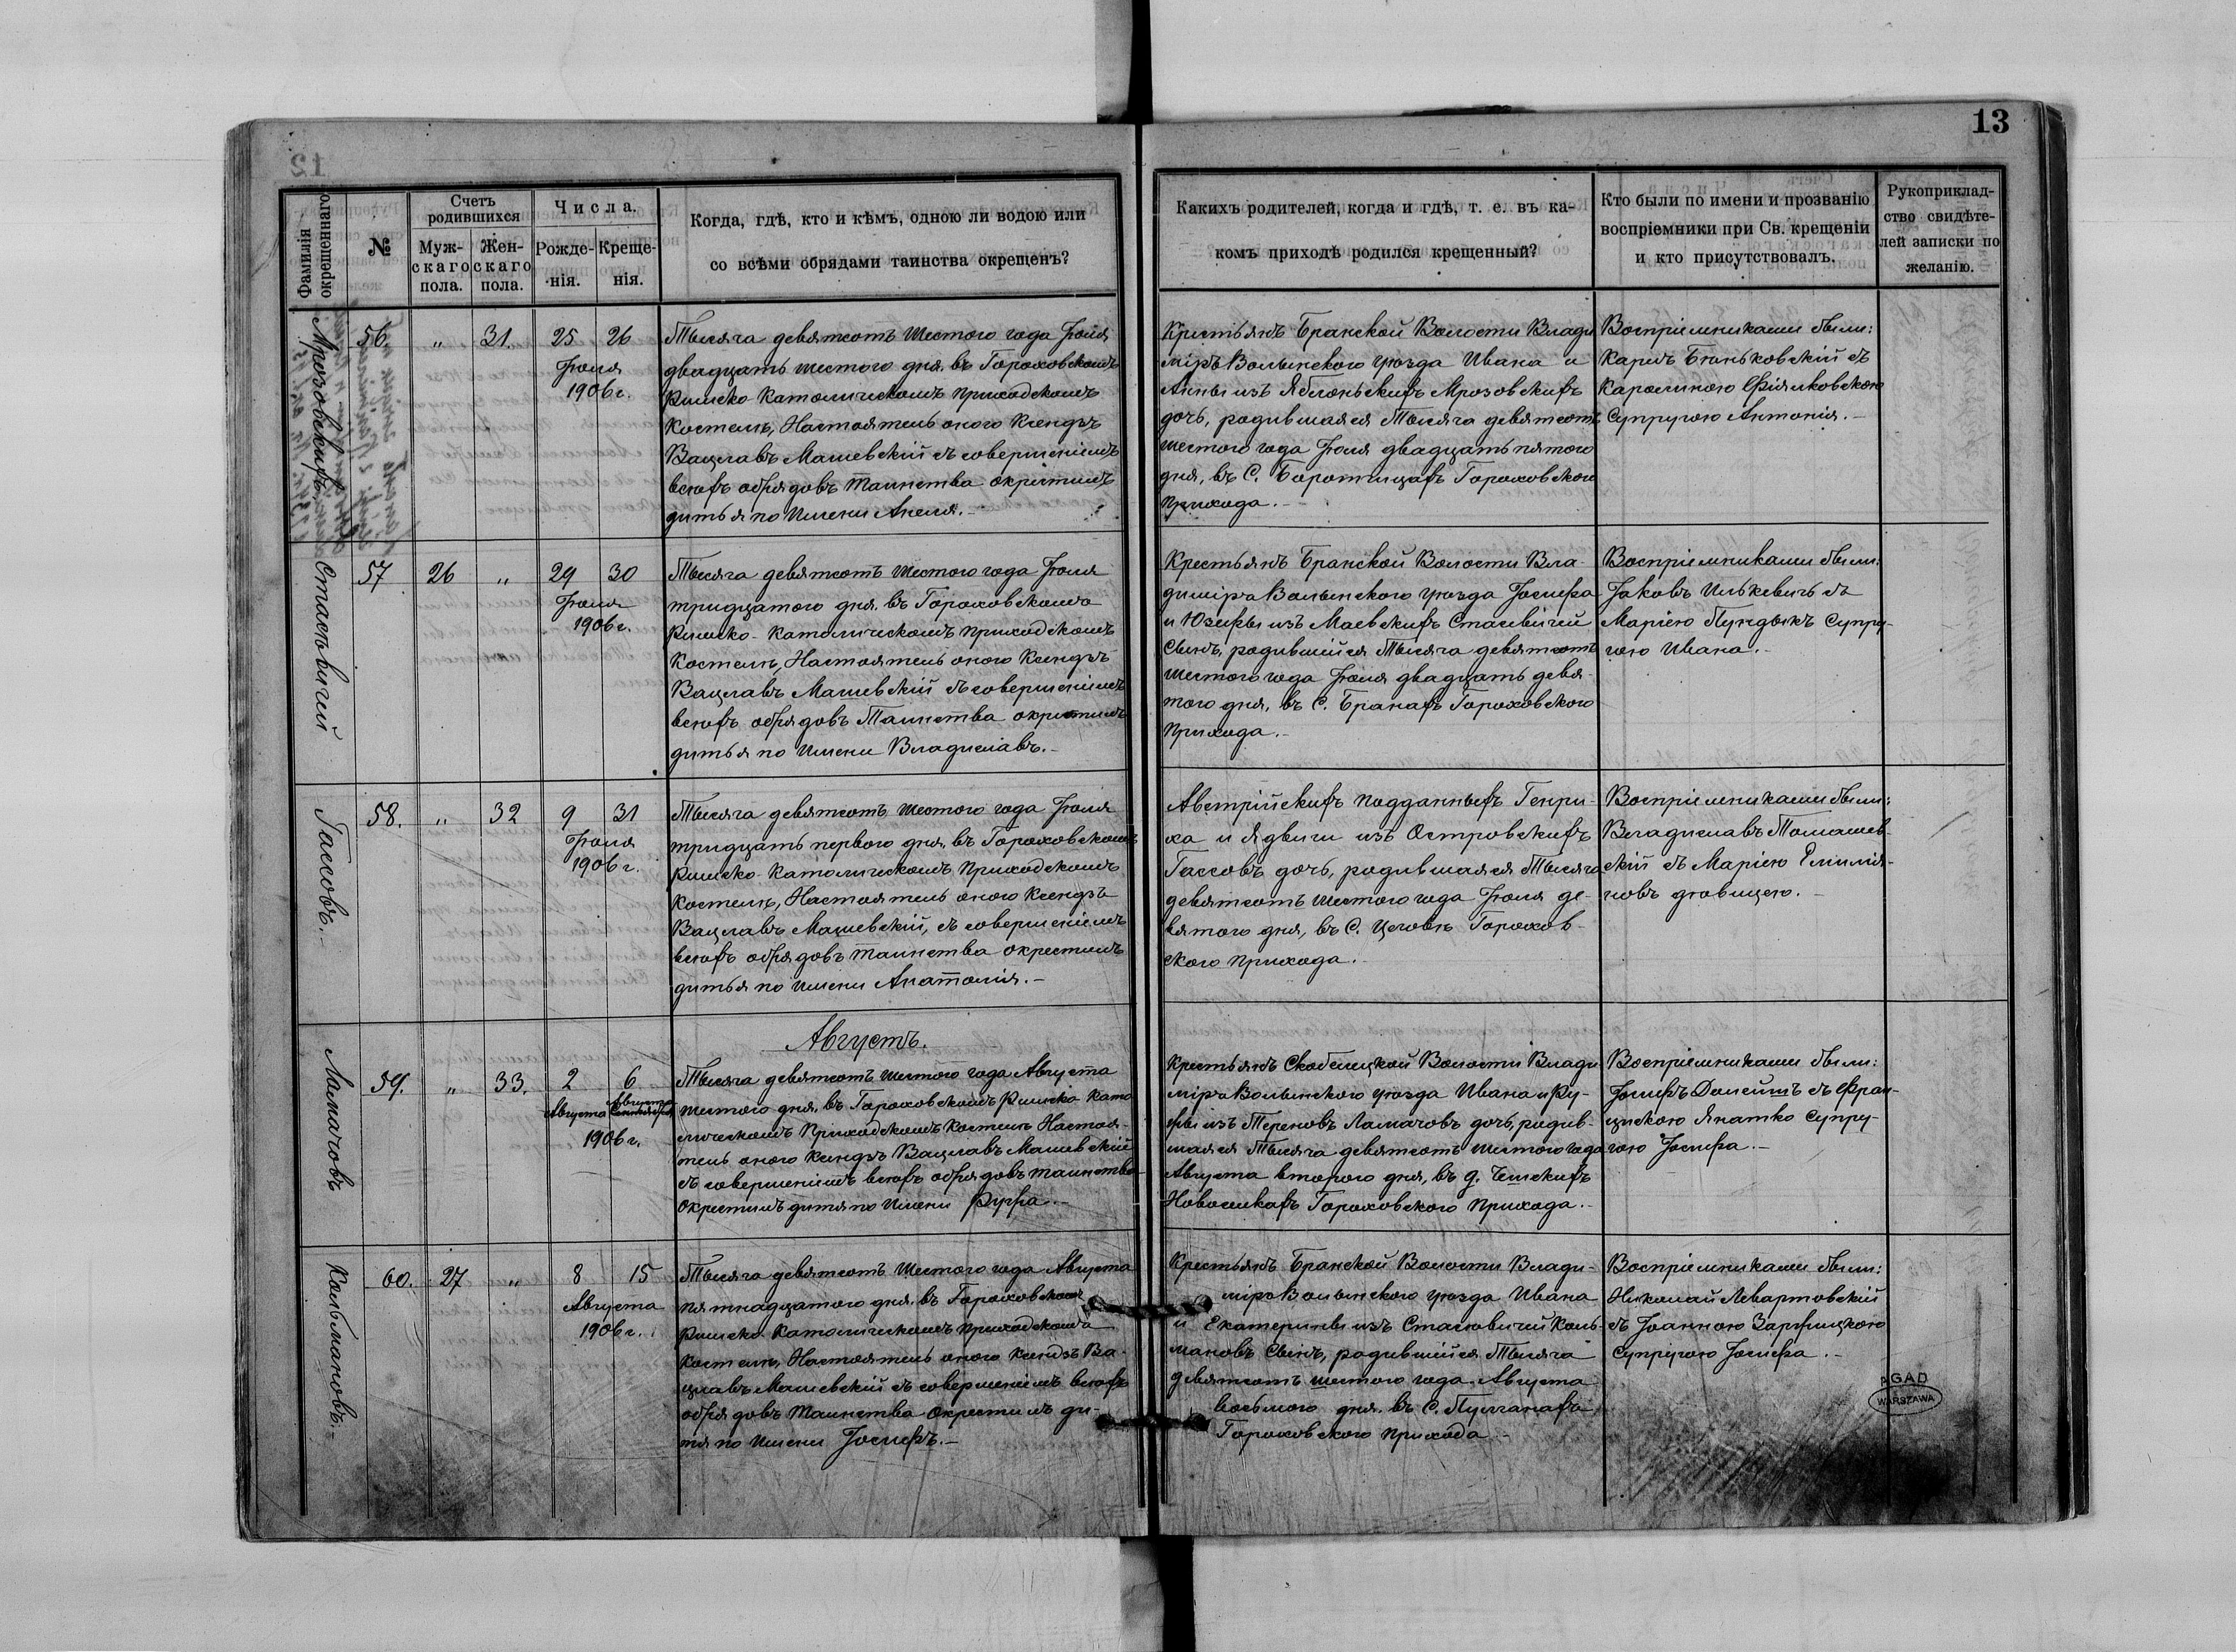 13
Фамилія окрещеннаго.
№
Счетъ родившихся
Муж-скаго пола.
Жен-скаго пола.
Числа.
Рожде-нія.
Креще-нія.
Когда, гдѣ, кто и кѣмъ, одною ли водою или
со всѣми обрядами таинства окрещенъ?
Какихъ родителей, когда и гдѣ, т. е. въ ка-
комъ приходѣ родился крещенный?
Кто были по имени и прозванію
воспріемники при Св. крещеніи
и кто присутствовалъ.
Рукоприклад-
ство свидѣте-
лей записки по
желанію.
Мрозовскихъ
56.
"
31.
25
26
Іюля
1906 г.
Тысяча девятсотъ шестого года Іюля
двадцать шестого дня, въ Гороховскомъ
Римско-Католическомъ приходскомъ
костелѣ, Настоятель оного Ксендзъ
Вацлавъ Машевскій съ совершеніемъ
всѣхъ обрядовъ таинства окрестилъ
дитья по имени Анеля.-
Крестьянъ Бранской Волости Влади
міръ Волынского уѣзда Ивана и
Анны изъ Яблоньскихъ Мрозовскихъ
дочь, родившаяся Тысяча девятсотъ
шестого года Іюля двадцать пятого
дня, въ С. Боротицахъ Гороховского
прихода.-
Воспріемниками были:
Каролъ Баньковскій съ
Каролиною Фіялковскою
супругою Антонія.-
Стасѣвичей
57
26
"
29
30
Іюля
1906 г.
Тысяча девятсотъ шестого года Іюля
тридцатого дня, въ Гороховскомъ
Римско-Католическомъ приходскомъ
костелѣ, Настоятель оного Ксендзъ
Вацлавъ Машевскій съ совершеніемъ
всѣхъ обрядовъ Таинства окрестилъ
дитья по имени Владиславъ.-
Крестьянъ Бранской Волости Вла-
диміръ Волынского уѣзда Іосифа
и Юзефы изъ Маевскихъ Стасевичей
сынъ, родившійся Тысяча девятсотъ
шестого года Іюля двадцать девя-
того дня, въ С. Бранахъ Гороховского
прихода.-
Воспріемниками были:
Іаковъ Илькевичъ съ
Маріею Пундыкъ супру-
гою Ивана.-
Гассовъ.
58.
"
32
9
31
Іюля
1906 г.
Тысяча девятсотъ шестого года Іюля
тридцать первого дня, въ Гороховскомъ
Римско-Католическомъ приходскомъ
костелѣ, Настоятель оного Ксендзъ
Вацлавъ Машевскій, съ совершеніемъ
всѣхъ обрядовъ таинства окрестилъ
дитья по имени Анатолія.-
Австрійскихъ подданныхъ Генри-
ха и Ядвиги изъ Островскихъ
Гассовъ дочь, родившаяся Тысяча
девятсотъ шестого года Іюля де-
вятого дня, въ С. Цеговѣ Горохов-
ского прихода.
Воспріемниками были:
Владиславъ Томашев-
скій съ Маріею Емилія-
новъ дѣвицею.-
Августъ.
Ламачовъ
59.
"
33.
2
6
Августа
Августа
1906 г.
Тысяча девятсотъ шестого года Августа
шестого дня, въ Гороховскомъ Римско-Като
лическомъ Приходскомъ костелѣ Настоя-
тель оного Ксендзъ Вацлавъ Машевскій
съ совершеніемъ всѣхъ обрядовъ таинства
окрестилъ дитя по имени Руфа.-
Крестьянъ Скобелецкой Волости Влади
міръ Волынского уѣзда Ивана и Ру-
фы изъ Тереновъ Ламачовъ дочь, родив-
шаяся Тысяча девятсотъ шестого года
Августа второго дня, въ д. Чешскихъ
Новоселкахъ Гороховского Прихода.-
Воспріемниками были:
Іосифъ Долейшъ съ Фран-
цискою Янатко супру-
гою Іосифа.-
Кольмановъ.-
60.
27
"
8
15
Августа
1906 г.
Тысяча девятсотъ шестого года Августа
пятнадцатого дня, въ Гороховскомъ
Римско-Католическомъ приходскомъ
костелѣ, Настоятель оного Ксендзъ Ва-
цлавъ Машевскій съ совершеніемъ всѣхъ
обрядовъ Таинства окрестилъ ди-
тя по имени Іосифъ.-
Крестьянъ Бранской Волости Влади-
міръ Волынского уѣзда Ивана
и Екатерины изъ Стасѣвичей Коль-
мановъ сынъ, родившійся Тысяча
девятсотъ шестого года Августа
восьмого дня, въ С. Пулганахъ
Гороховского прихода.-
Воспріемниками были:
Николай Левартовскій
съ Іоанною Зарфицкою
супругою Іосифа.-
AGAD
WARSZAWA